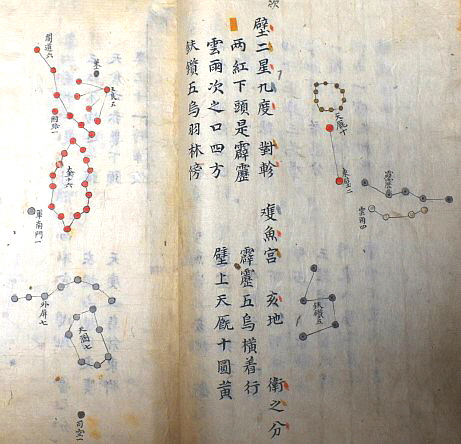 次
壁二星九度 對軫 雙魚宮 亥地 衛之分
兩紅下頭是霹靂 霹靂五烏橫着行
雲雨次之口四方 壁上天厩十圓黃
鈇鑕五烏羽林傍
天厩十
東壁二
霹靂五
雲雨四
鈇鑕五
閣道六
策
王良五
附路一
軍南門一
外屏七
天溷七
司空一